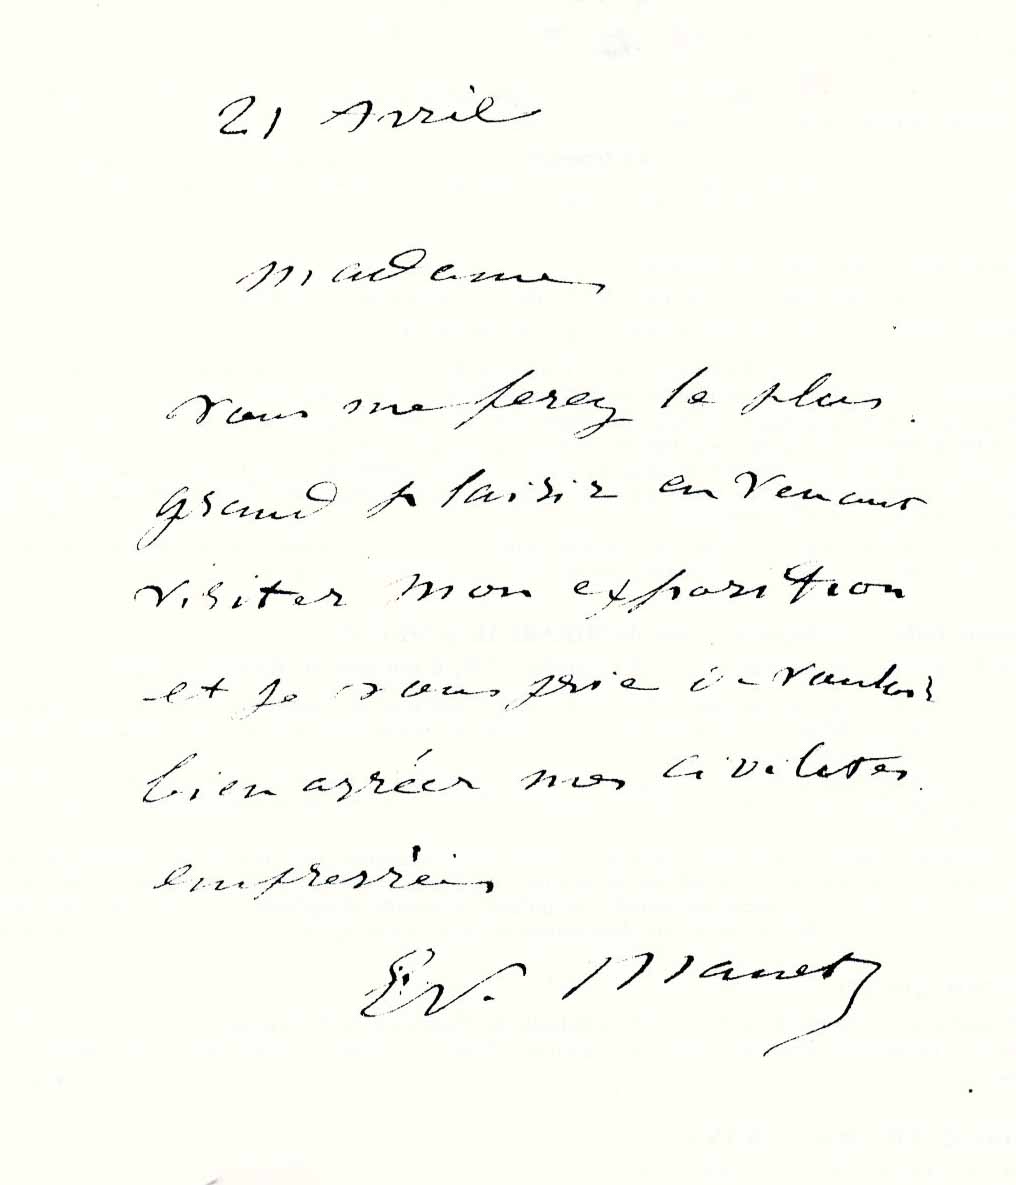 21 Avril
Madame,
vous me ferez le plus
grand plaisir en venant
visiter mon exposition
et je vous prie de vouloir
bien agréer mes civilités
empressées
Ed. Manet